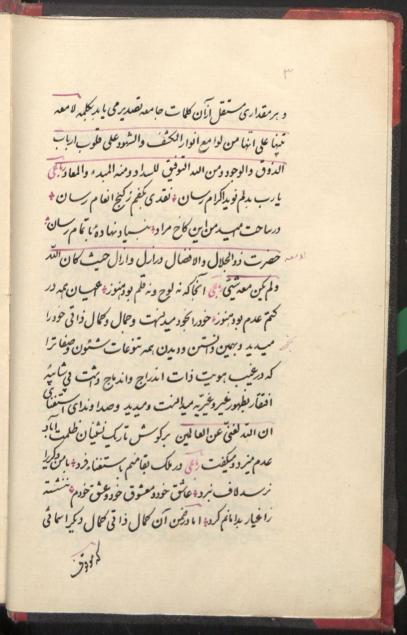 ۳
و هر مقداری مستقل از آن کلمات جامعه تصدیر می یابد بکلمه لامعه
تنبیها علی انها من لوامع انوار الکشف و الشهود علی قلوب ارباب
الذوق و الوجود و من الله التوفیق للسداد و منه المبدء و المعاد رباعی
یا رب بدلم نوید اکرام رسان نقدی بکفم ز کنج انعام رسان
در ساحت امید من این کاخ مراد بنیاد نهادهٔ باتمام رسان
حضرت ذو الجلال و الافضال در ازل آزال حیث کان الله
لامعه
و لم یکن معه شیئ رباعی آنجا که نه لوح و نه قلم بود هنوز اعیان همه در
کتم عدم بود هنوز خود را بخود میدانست و جمال و کمال ذاتی خود را
میدید و بهمین دانستن و دیدن همه تنوعات شئون و صفات را
که در غیب هویت ذات اندراج و اندماج داشت بی شایبهٔ
افتقار بظهور غیر و غیریه میدانست و میدید و صدا و ندای استغنای
ان الله لغنی عن العالمین بر کوش تاریک نشینان ظلمت آباد
عدم میزد و میکفت رباعی در ملک بقا منم باستغنا فرد با من دیکری را
نرسد لاف نبرد عاشق خود و معشوق خود و عشق خودم ننشسته
ز اغیار بدامانم کرد اما در ضمن آن کمال ذاتی کمال دیکر اسمائی
که موقوف